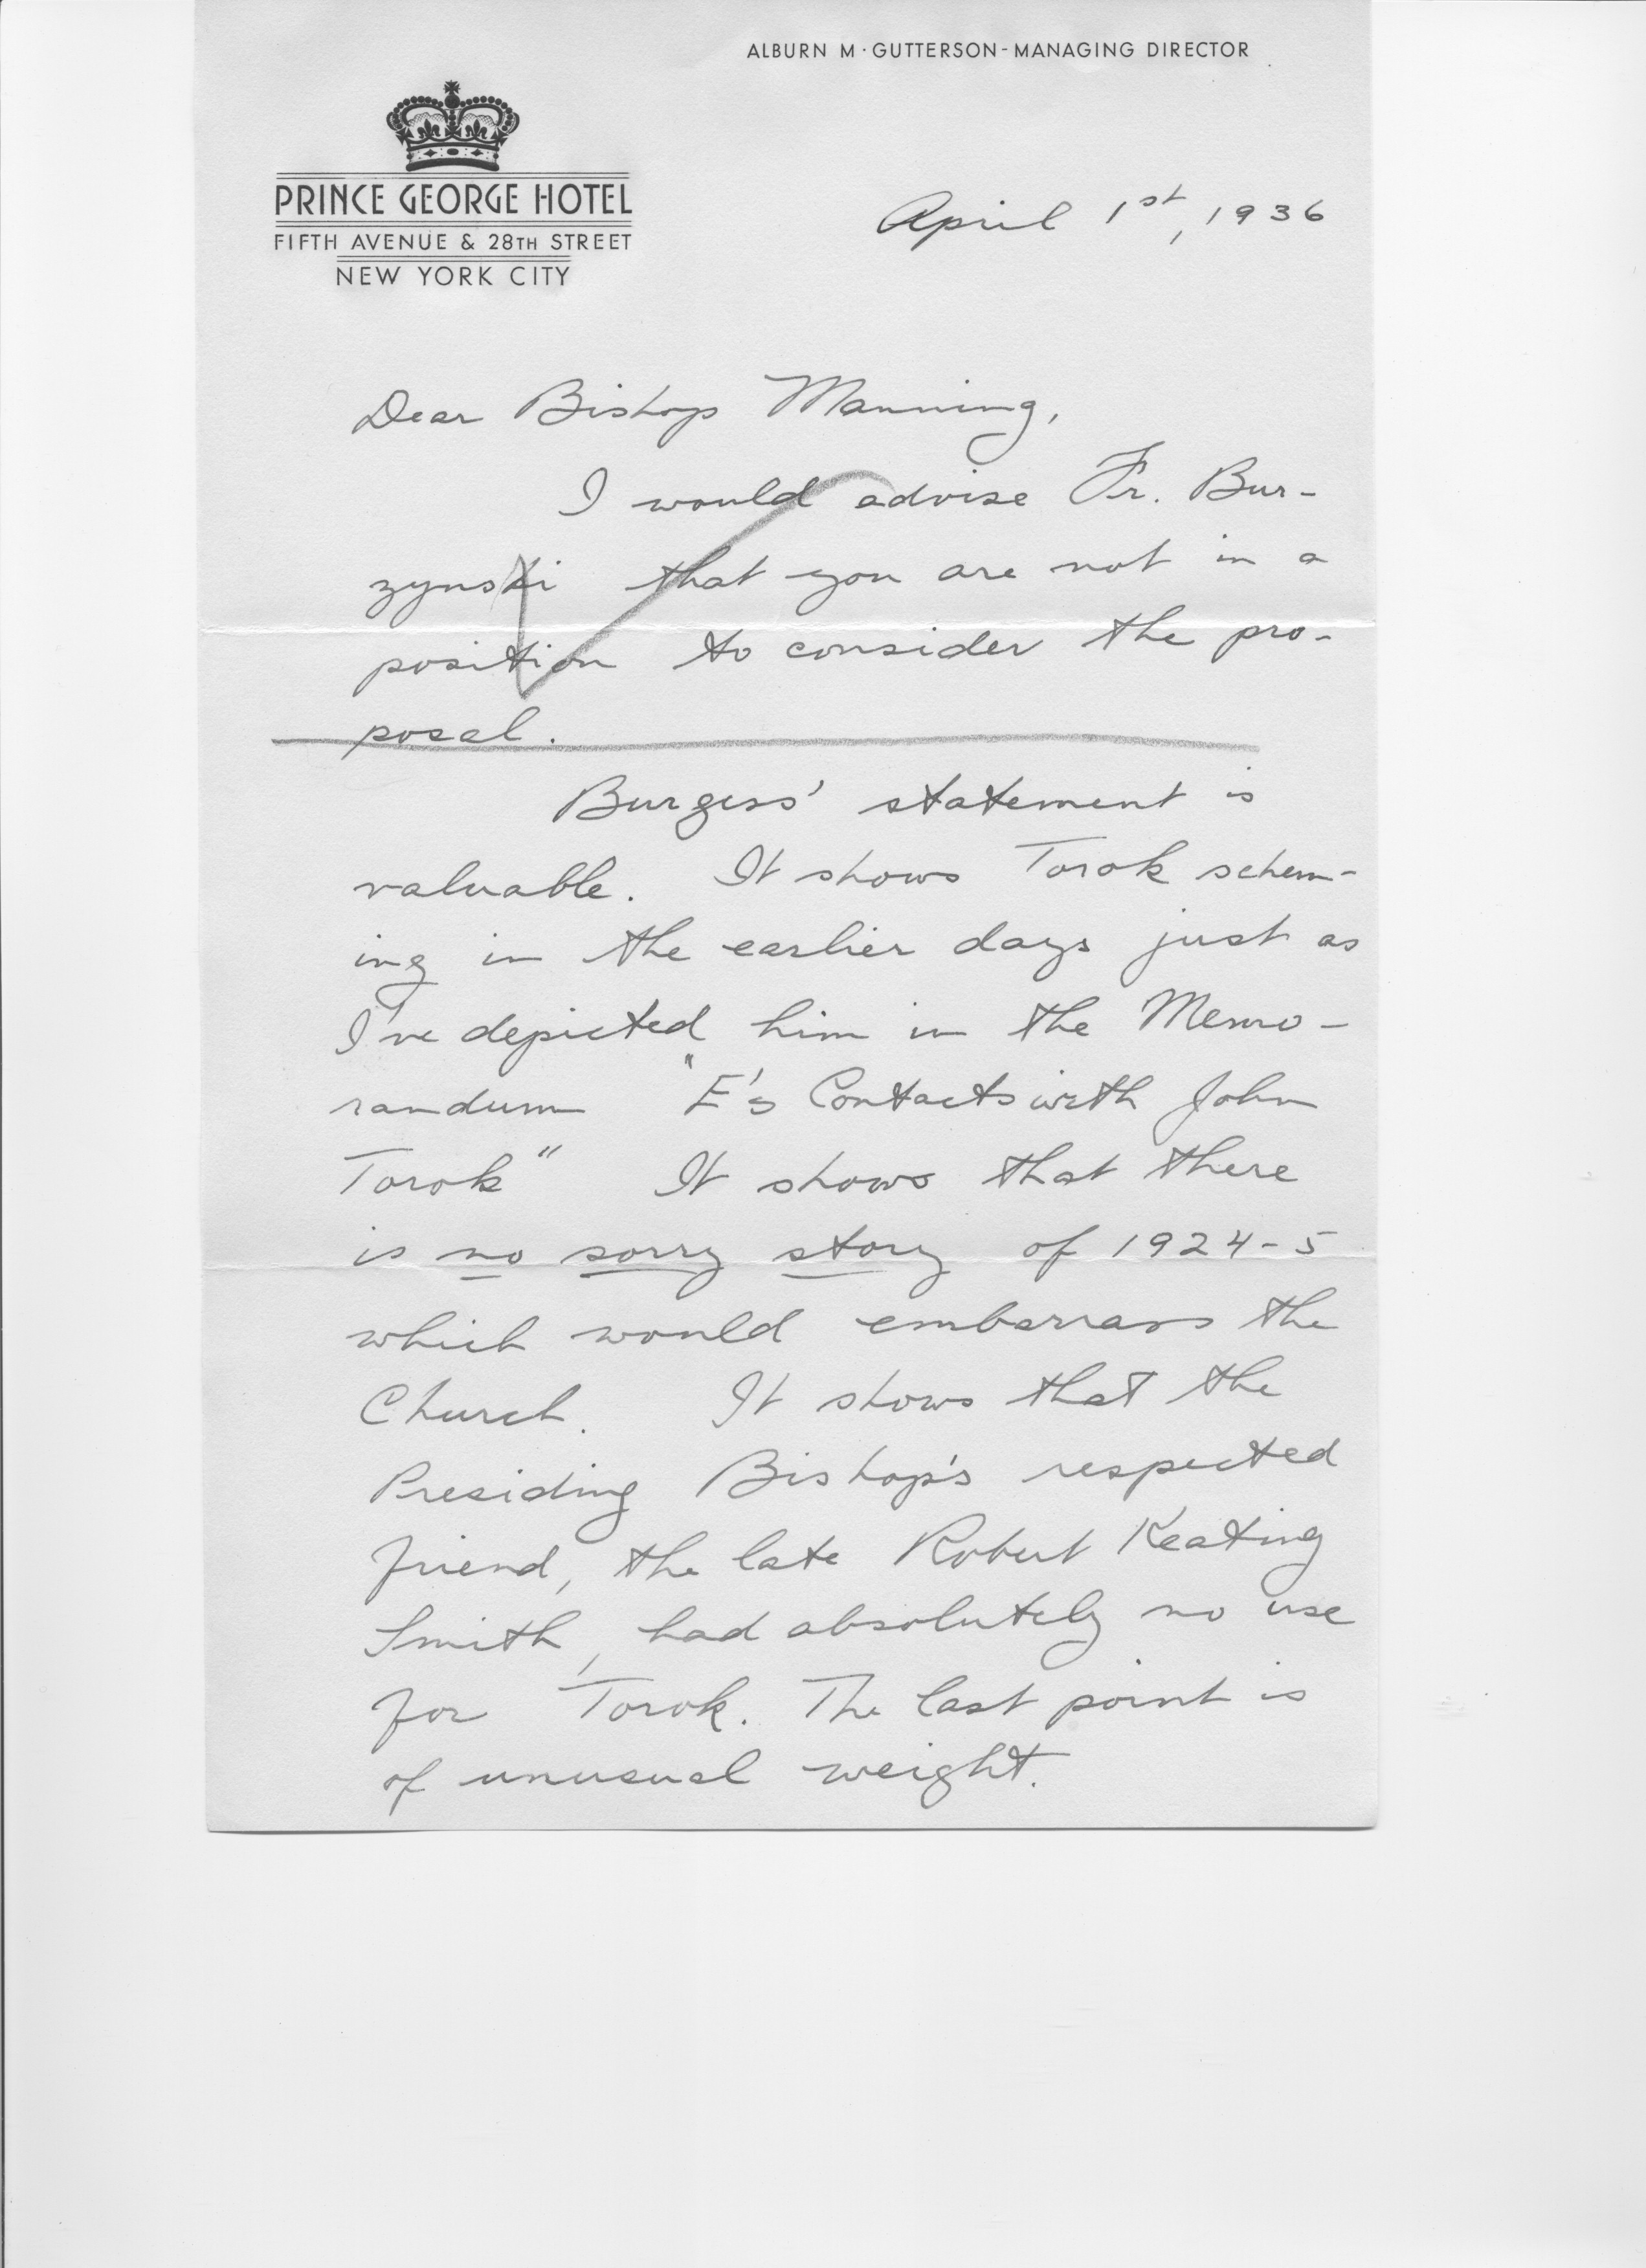 ALBURN M · GUTTERSON - MANAGING DIRECTOR
PRINCE GEORGE HOTEL
FIFTH AVENUE & 28TH STREET
NEW YORK CITY
April 1st, 1936
Dear Bishop Manning,
I would advise Fr. Bur-
zynski that you are not in a
position to consider the pro-
posal.
Burgess' statement is
valuable. It shows Torok schem-
ing in the earlier days just as
I've depicted him in the Memo-
randum "E's Contacts with John
Torok" It shows that there
is no sorry story of 1924-5
which would embarrass the
Church. It shows that the
Presiding Bishop's respected
friend, the late Robert Keating
Smith, had absolutely no use
for Torok. The last point is
of unusual weight.